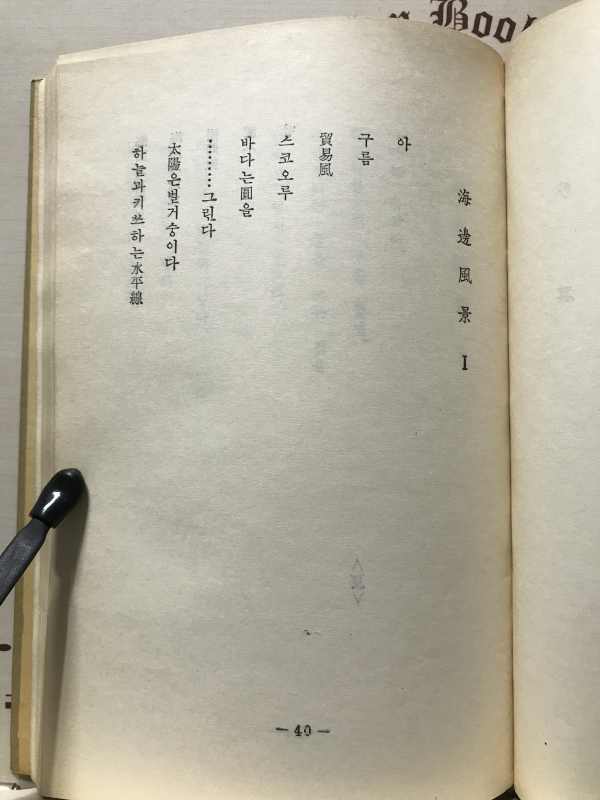 海邊風景 I
아
구름
貿易風
스코오루
바다는圓을
………그린다
太陽은벌거숭이다
하늘과키쓰하는水平線
— 40 —